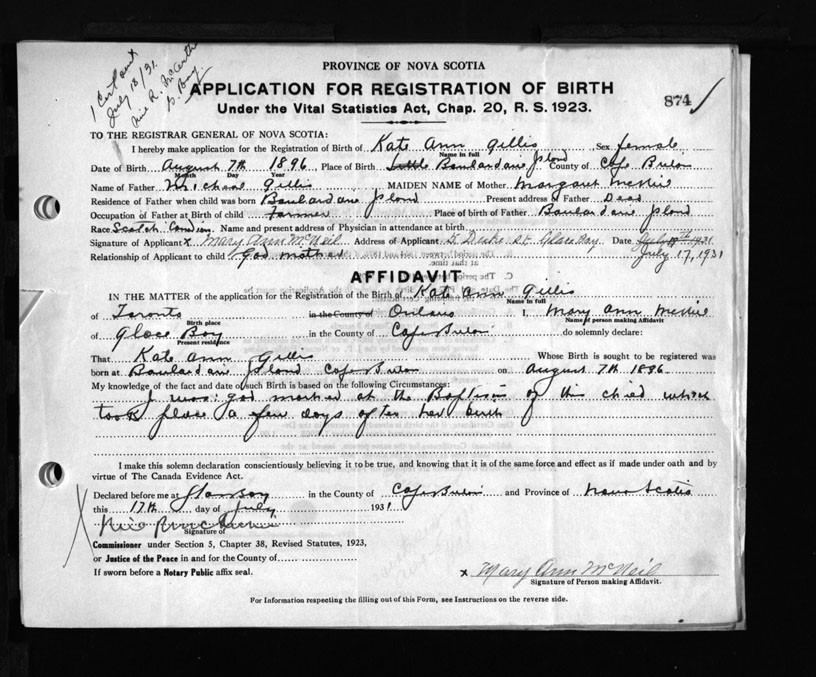 1 Cert sent
July 18/31.
G. Bay.
PROVINCE OF NOVA SCOTIA
APPLICATION FOR REGISTRATION OF BIRTH
Under the Vital Statistics Act, Chap. 20, R. S. 1923.
874
TO THE REGISTRAR GENERAL OF NOVA SCOTIA:
I hereby make application for the Registration of Birth of Kate Ann Gillis Sex female
Name in full
Date of Birth August 7th 1896 Place of Birth Little Boulardarie Island County of Cape Breton
Month Day Year
Name of Father Michael Gillis MAIDEN NAME of Mother Margaret McNeil
Residence of Father when child was born Boulardarie Island Present address of Father Dead
Occupation of Father at Birth of child Farmer Place of birth of Father Boulardarie Island
Race Scotch Canadian Name and present address of Physician in attendance at birth
Signature of Applicant x Mary Ann McNeil Address of Applicant Duke St. Glace Bay Date July 1931
Relationship of Applicant to child god mother July 17, 1931
AFFIDAVIT
IN THE MATTER of the application for the Registration of the Birth of Kate Ann Gillis
Name in full
of Toronto in the County of Ontario I, Mary Ann McNeil
Birth place Name of person making Affidavit
of Glace Bay in the County of Cape Breton do solemnly declare:
Present residence
That Kate Ann Gillis Whose Birth is sought to be registered was
born at Boulardarie Island Cape Breton on August 7th 1896
My knowledge of the fact and date of such Birth is based on the following Circumstances:
I was god mother at the Baptism of this child which
took place a few days after her birth
I make this solemn declaration conscientiously believing it to be true, and knowing that it is of the same force and effect as if made under oath and by
virtue of The Canada Evidence Act.
Declared before me at Glace Bay in the County of Cape Breton and Province of Nova Scotia
this 17th day of July 1931
Signature of
Commissioner under Section 5, Chapter 38, Revised Statutes, 1923,
or Justice of the Peace in and for the County of
If sworn before a Notary Public affix seal.
x Mary Ann McNeil
Signature of Person making Affidavit.
For Information respecting the filling out of this Form, see Instructions on the reverse side.